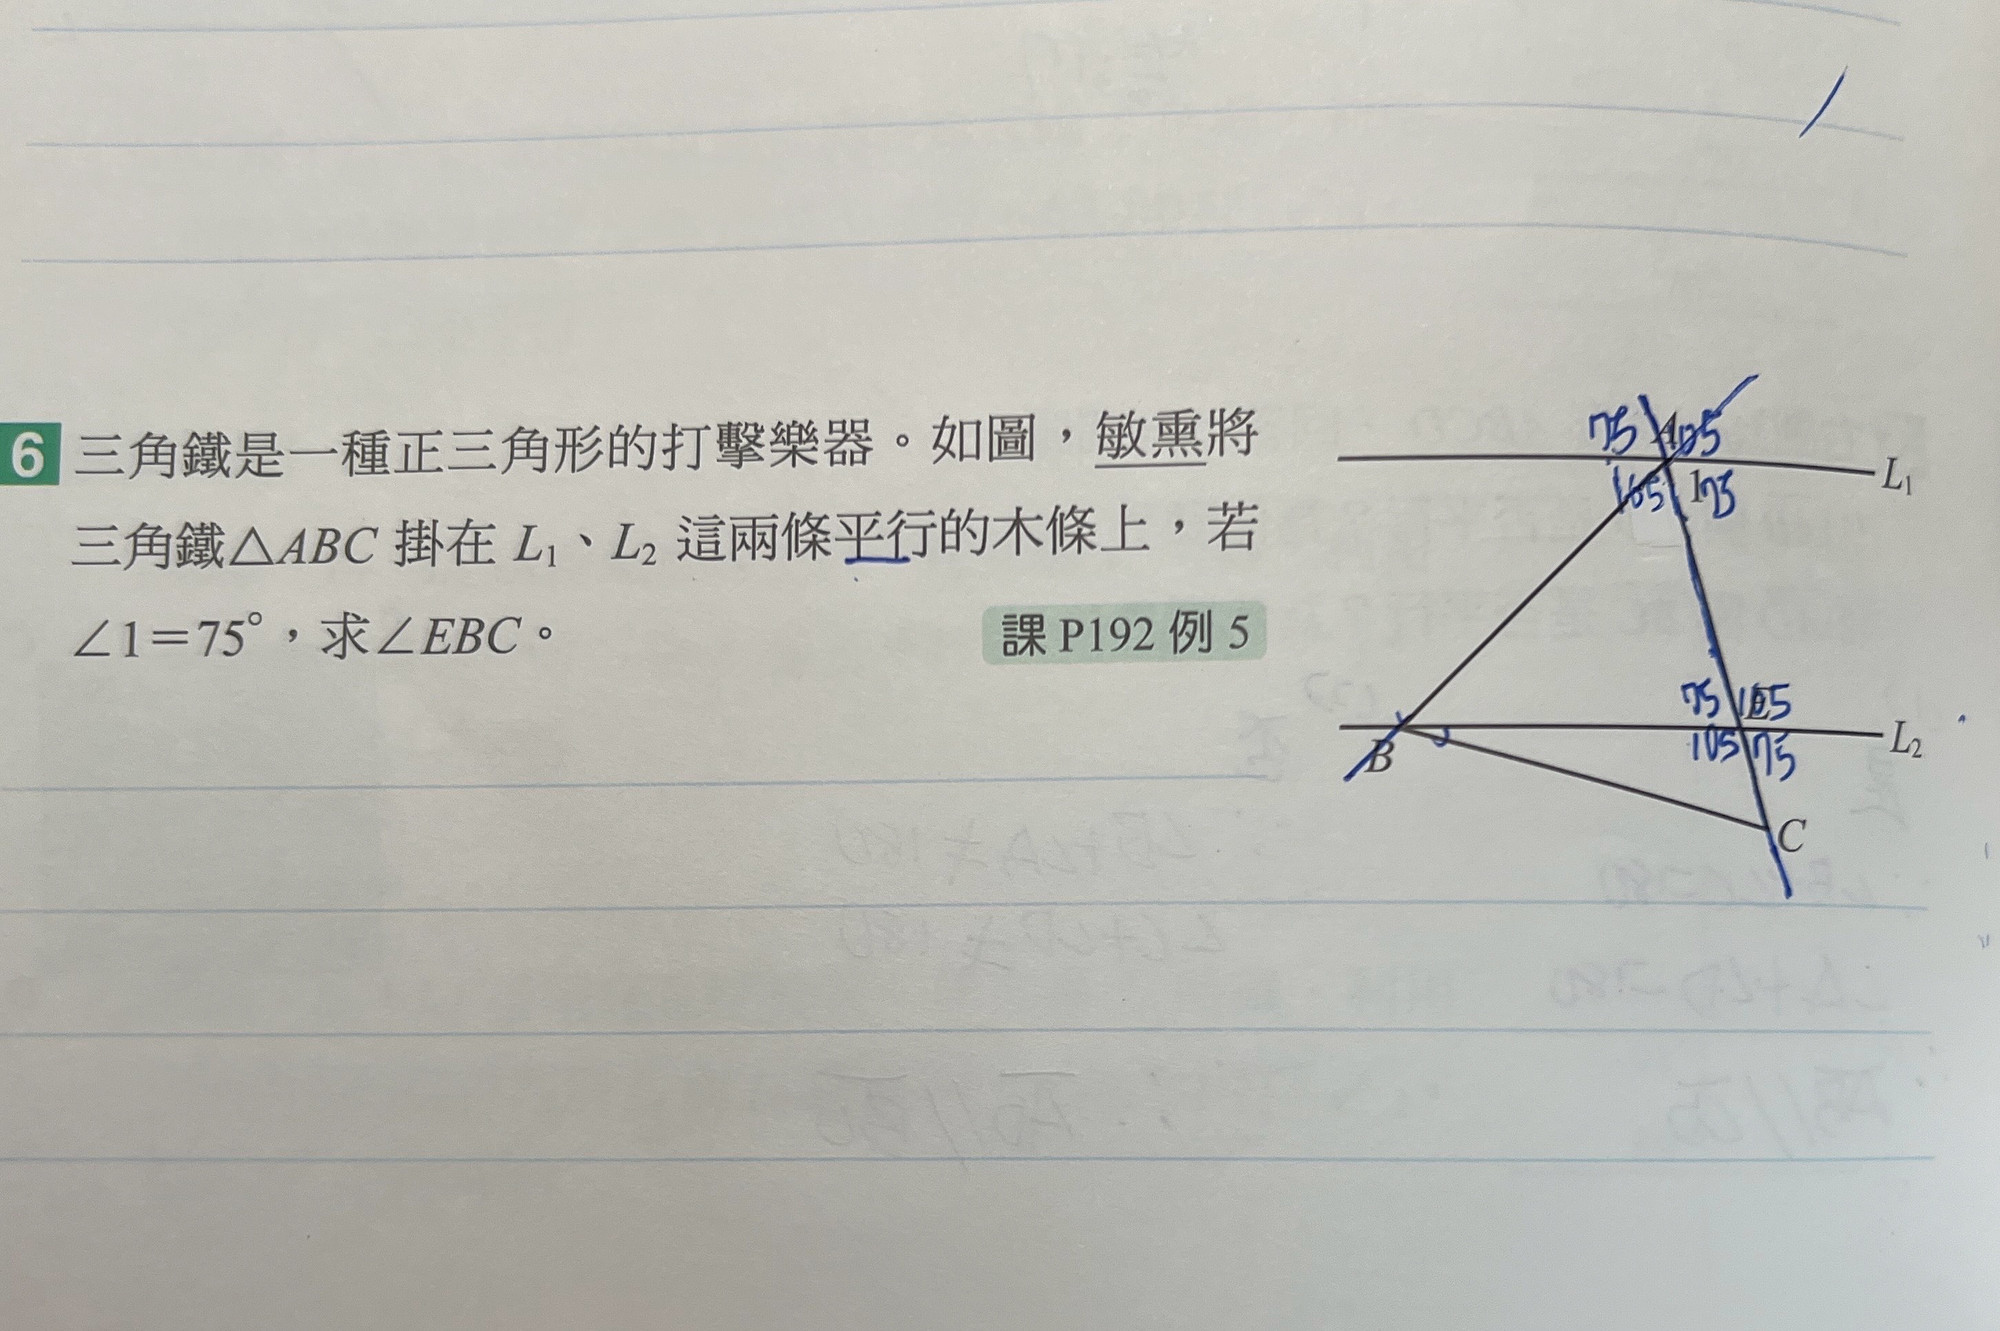 6 三角鐵是一種正三角形的打擊樂器。如圖，敏熏將
三角鐵△ABC 掛在 L₁、L₂ 這兩條平行的木條上，若
∠1＝75°，求∠EBC。
課 P192 例 5
75 A 105
L₁
105 1 75
75 E 105
B
L₂
105 75
C